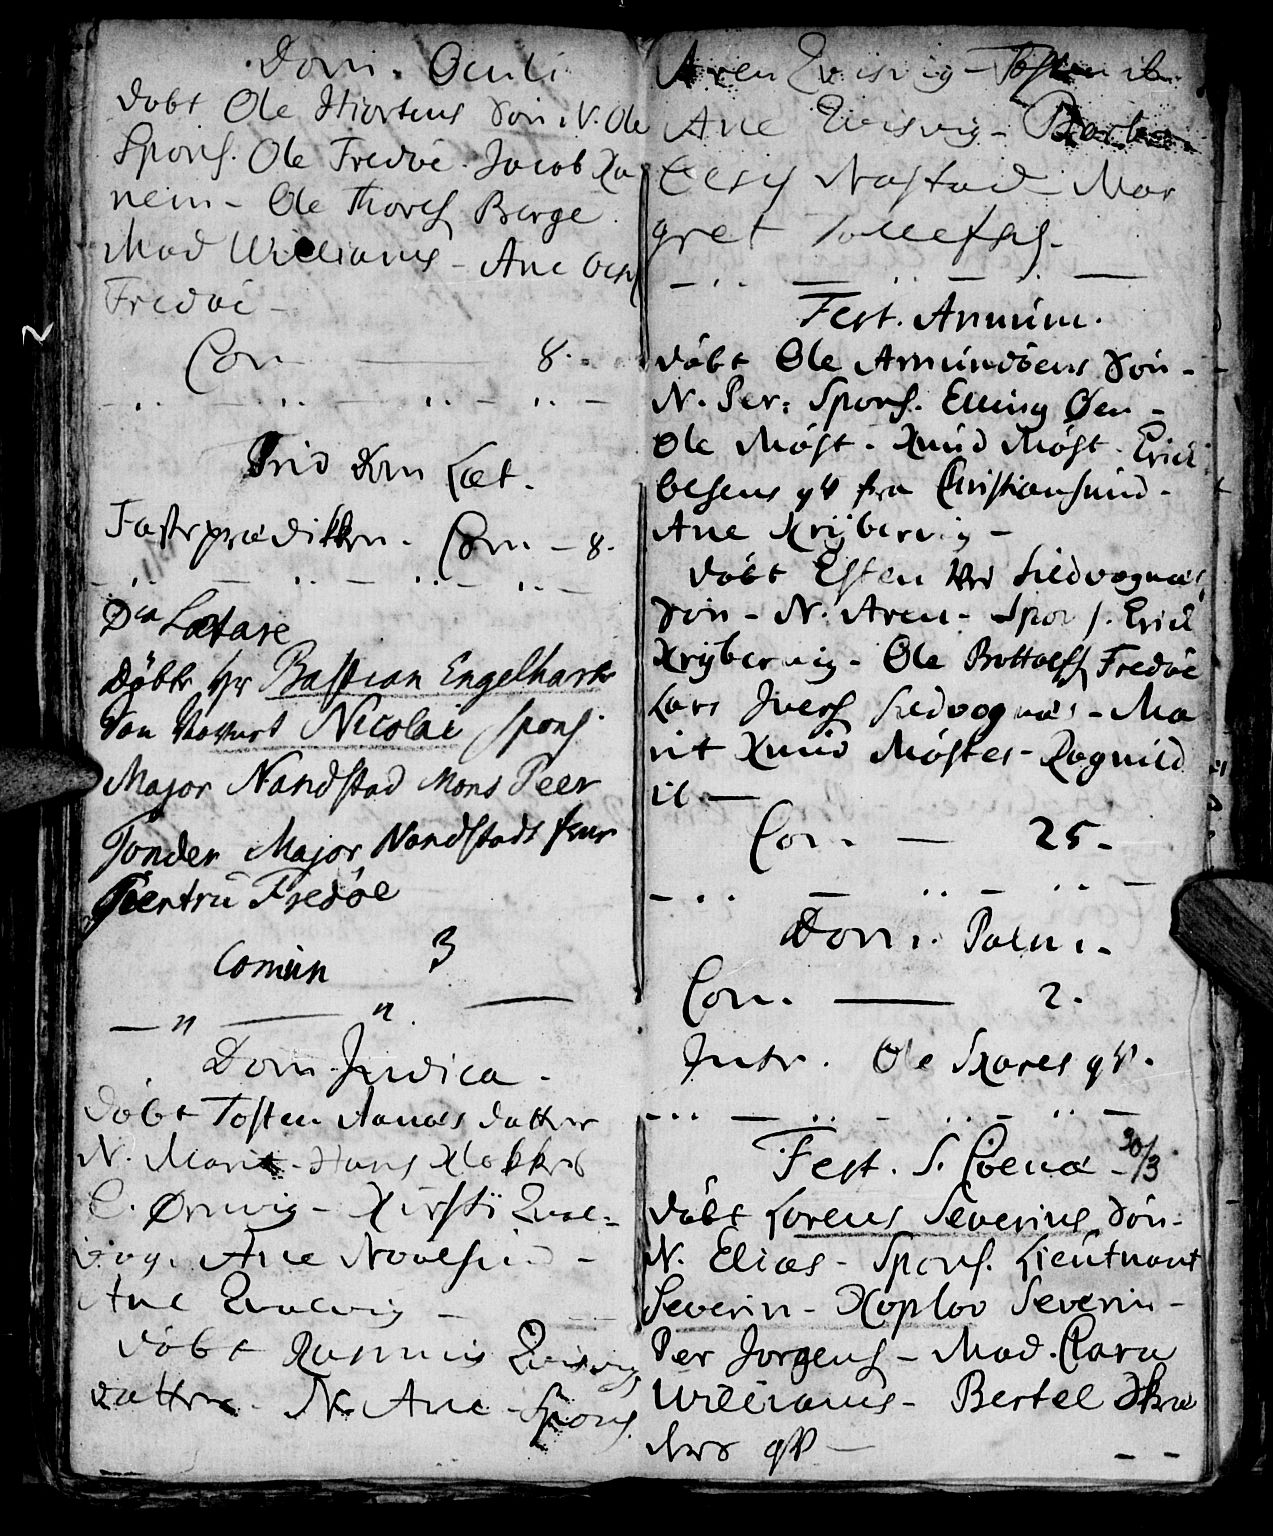 Dom. Oculi
døbt Ole Hiortens Søn. N. Ole
Spons. Ole Fredøe. Jacob Ra
nem - Ole Thoress Berge
Mad Williams - Ane Oesh
Fredøe -
Com 8.
Prid Dom Læt.
Fasteprædikken. Com - 8.
Dca Lætare
Døbte Hr Bastian Engelhart
Søn Nafnet Nicolai Spons
Major Nandstad Mons Peer
Tonder Major Nandstads frue
Fredøe
Comun 3
Dom Judica.
døbt Tosten Aanæs datter
N. Marit. Hans Klokker
C. Ørnvig - Kirsti Qvæ-
Ane
Ane Qvalvig -
døbt Rasmus Qvisvig
datter. N. Ane - Spons.
Aren Qvisvig - Tosten ib
Ane Qvisvig -
Nastad - Mar
gret Tollefss.
Fest. Annunc.
døbt Ole Amundøens Søn -
N. Per. Spons. Elling Øen -
Ole Møst. Knud Møst. Erich
Oesens qv fra Christiansund -
Ane Krijbervig -
døbt Esten ved Siedvognæs
Søn - N. Aren - Spons. Erich
Krijbervig - Ole Bottolfs Fredøe
Lars Ivers Siedvognæs - Ma
rit Knud Møstes - Ragnild
ib -
Com. 25.
Dom. Palm.
Com. 2.
Intr. Ole Skares qv.
Fest. S. Coenæ - 30/3
døbt Lorens Severins Søn -
N. Elias - Spons. Lieutnant
Severin - Koplov Severin -
Per Jørgens - Mad. Clara
Williams - Bertel Skræ
ders qv -